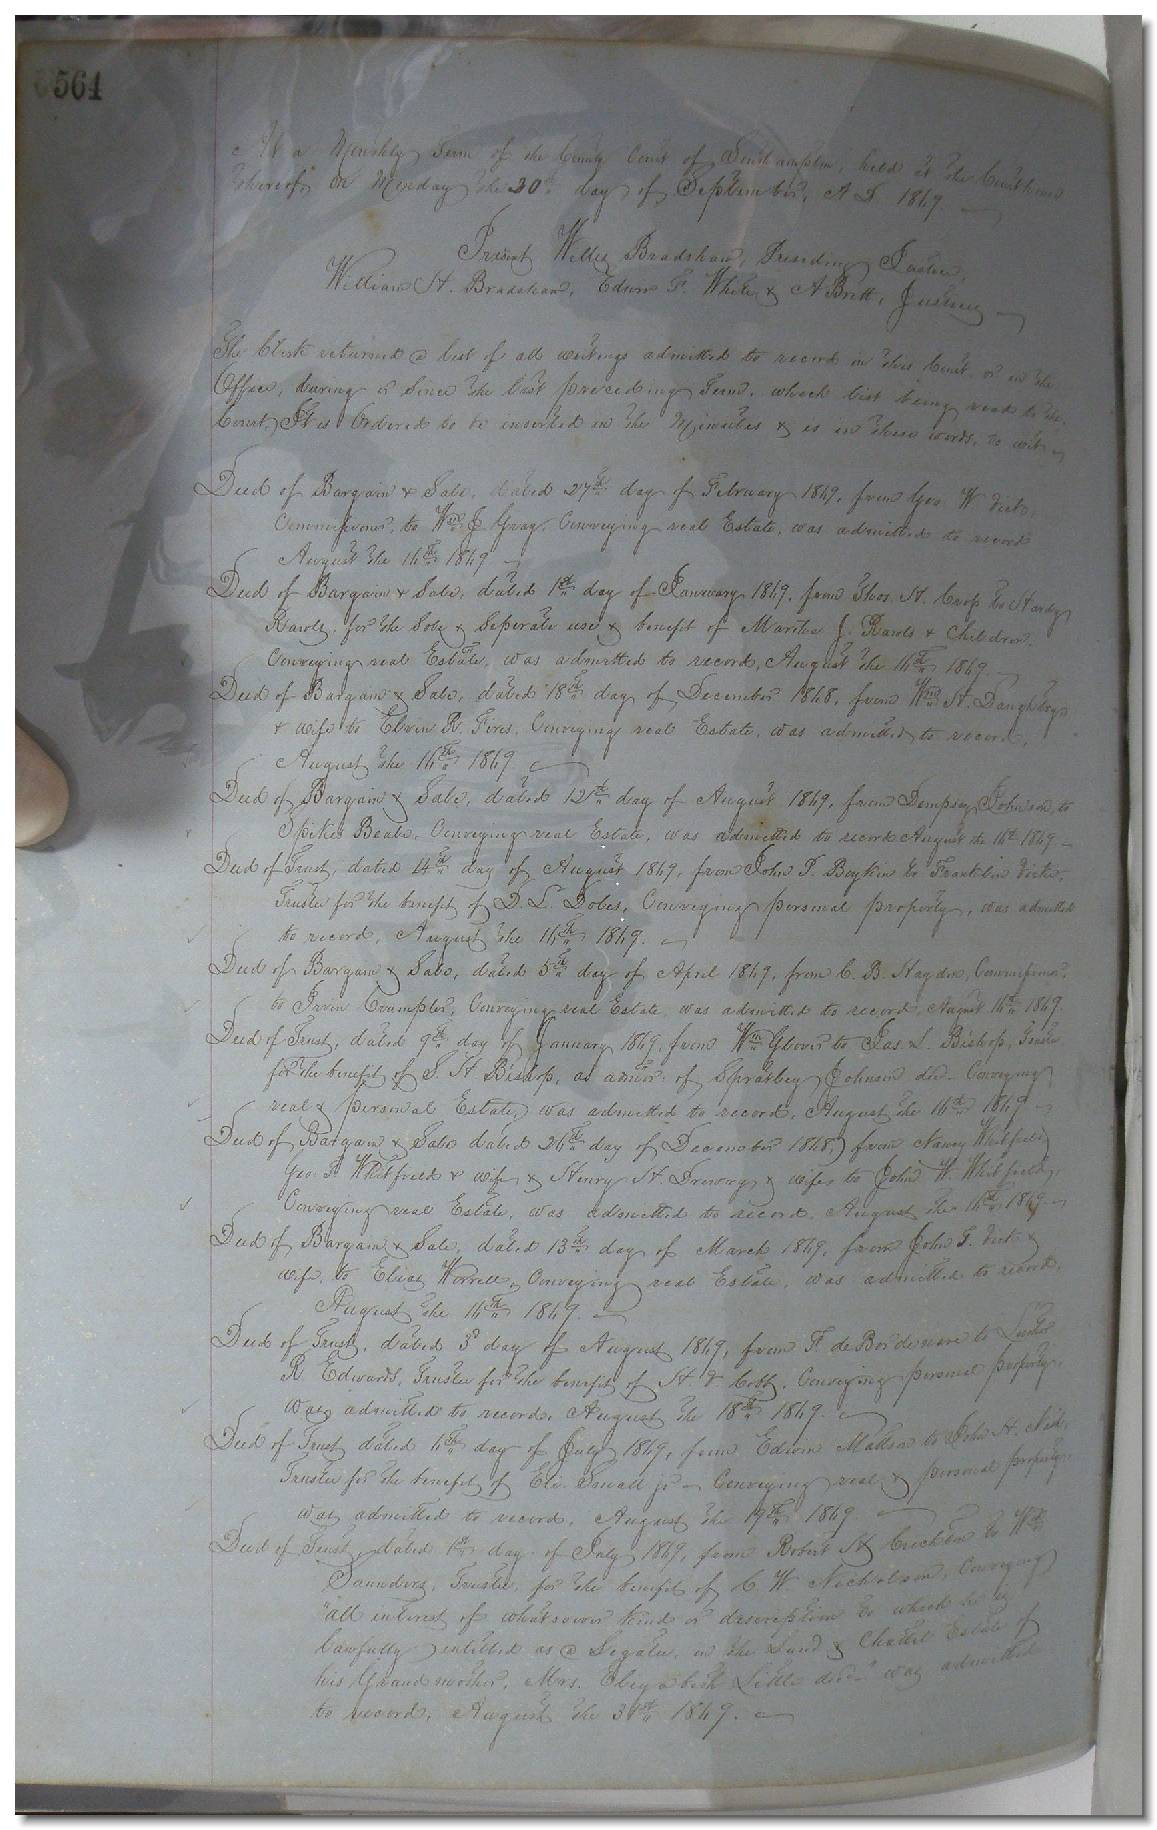 564
At a Monthly Term of the County Court of Southampton, held at the Courthouse
thereof, on Monday the 20th day of September, A D. 1869.
Present Willis Bradshaw, Presiding Justice,
William H. Bradshaw, Edwin F. White & A Britt, Justices
The Clerk returned a list of all writings admitted to record in this Court or in the
Office, during or since the last preceding Term, which list being read to the
Court, It is Ordered to be inserted in the Minutes & is in these words, to wit
Deed of Bargain & Sale, dated 27th day of February 1869, from Geo. W Vick,
Commissioner, to Wm J. Gray, Conveying real Estate, was admitted to record
August the 16th 1869
Deed of Bargain & Sale, dated 1st day of January 1869, from Thos. H. to Hardy
Rawls, for the Sole & Seperate use & benefit of J. Rawls & Children,
Conveying real Estate, was admitted to record, August the 16th 1869
Deed of Bargain & Sale, dated 18th day of December 1868, from Wm H. Daughtry
& wife to Elvin R. Conveying real Estate, was admitted to record,
August the 16th 1869
Deed of Bargain & Sale, dated 12th day of August 1869, from Dempsey Johnson, to
Spikes Beale, Conveying real Estate, was admitted to record August the 16th 1869
Deed of Trust, dated 14th day of August 1869, from John T. Boykin to Franklin Vick,
Trustee for the benefit of D. L. Doles, Conveying personal property, was admitted
to record, August the 16th 1869.
Deed of Bargain & Sale, dated 5th day of April 1869, from C. B. Hayden, Commissioner,
to Irvin Crumpler, Conveying real Estate was admitted to record, August 16th 1869.
Deed of Trust, dated 9th day of January 1869, from Wm Glover to Jas. L. Bishop, Trustee
for the benefit of S. H Bishop, as admor. of Spratley Johnson dec. Conveying
real & personal Estate, was admitted to record, August the 16th 1869
Deed of Bargain & Sale dated 26th day of December 1868, from Nancy Whitfield
Geo. Whitfield & wife & Henry H. Drewry & wife to John W. Whitfield,
Conveying real Estate, was admitted to record, August the 16th 1869
Deed of Bargain & Sale, dated 13th day of March 1869, from John T. Vick &
wife, to Elias Worrell, Conveying real Estate, was admitted to record,
August the 16th 1869.
Deed of Trust, dated 3d day of August 1869, from F. de Bordenave to
R. Edwards, Trustee for the benefit of H & Cobb, Conveying personal property,
was admitted to record, August the 18th 1869.
Deed of Trust dated 6th day of July 1869, from Edwin to John H.
Trustee for the benefit of Eli. Small jr Conveying real & personal property,
was admitted to record, August the 19th 1869
Deed of Trust, dated 1st day of July 1869, from Robert H Crichton to Wm
Saunders, Trustee, for the benefit of C W. Nicholson, Conveying
"all interest of whatsoever kind or description to which he is
lawfully entitled as a Legatee, in the Land & Chattel Estate of
his Grandmother, Mrs. Elizabeth Little dec." was admitted
to record, August the 31st 1869.